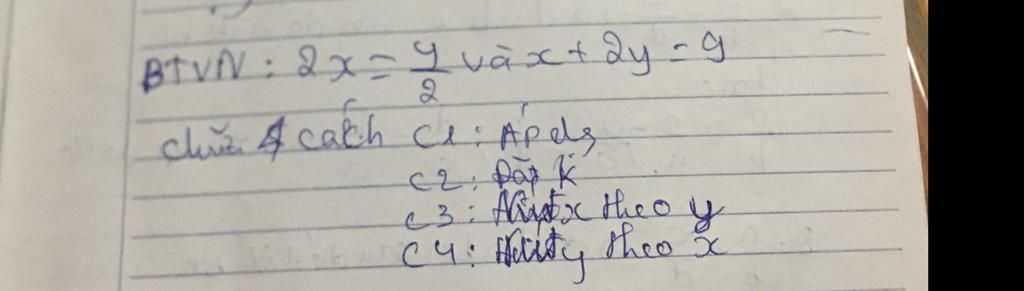 BTVN: 2x = y/2 và x + 2y = 9
chữa 4 cách C1: Áp dg
C2: Đặt k
C3: x theo y
C4: y theo x